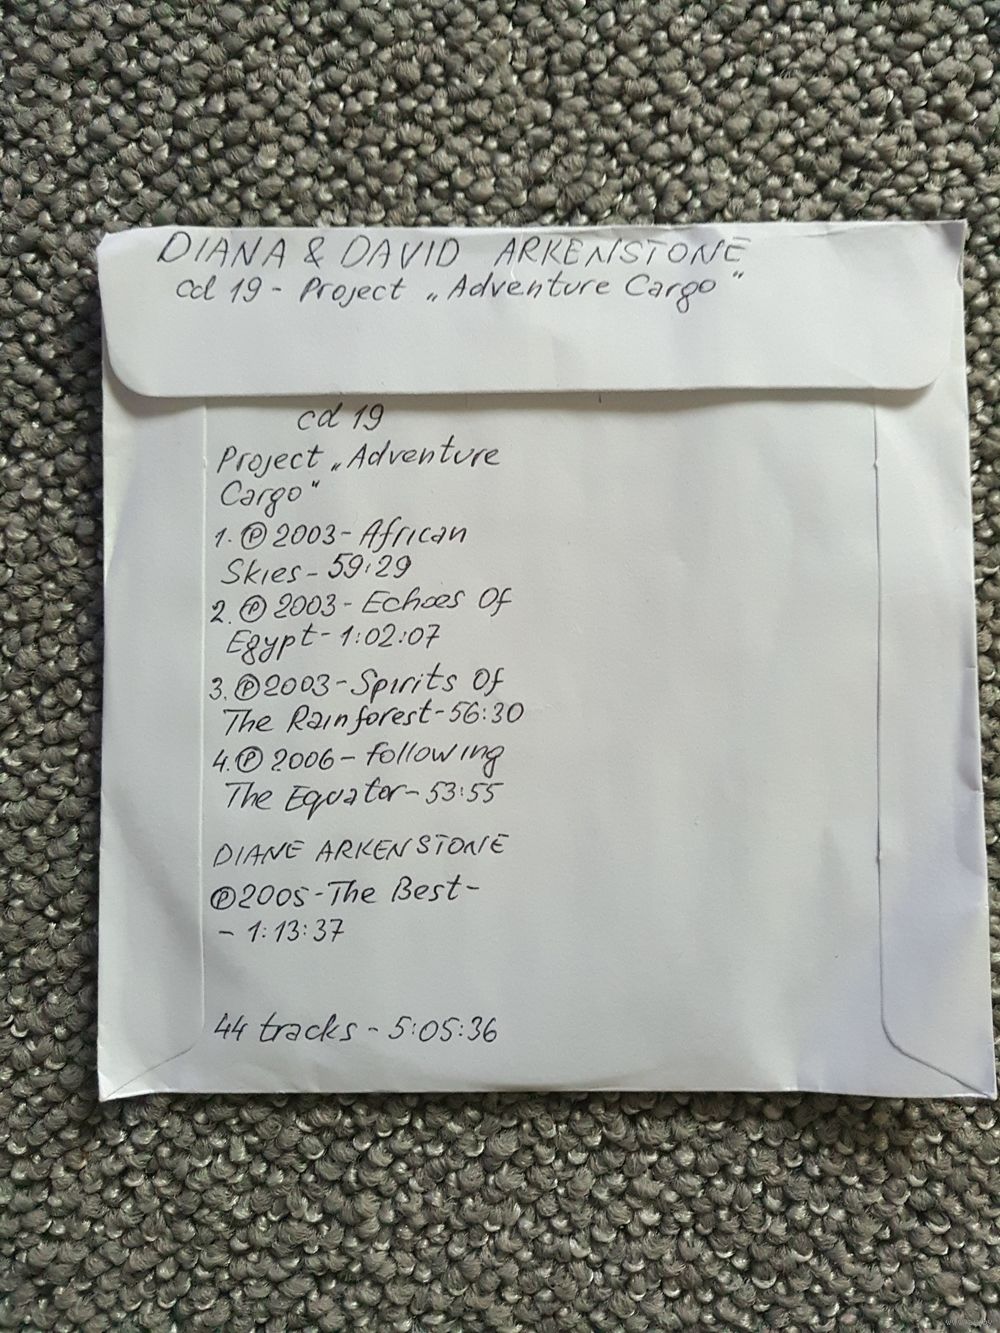 DIANA & DAVID ARKENSTONE
cd 19 - Project „Adventure Cargo"
cd 19
Project „Adventure
Cargo"
1. ℗ 2003 - African
Skies - 59:29
2. ℗ 2003 - Echoes Of
Egypt - 1:02:07
3. ℗ 2003 - Spirits Of
The Rainforest - 56:30
4. ℗ 2006 - Following
The Equator - 53:55
DIANE ARKENSTONE
℗ 2005 - The Best -
- 1:13:37
44 tracks - 5:05:36